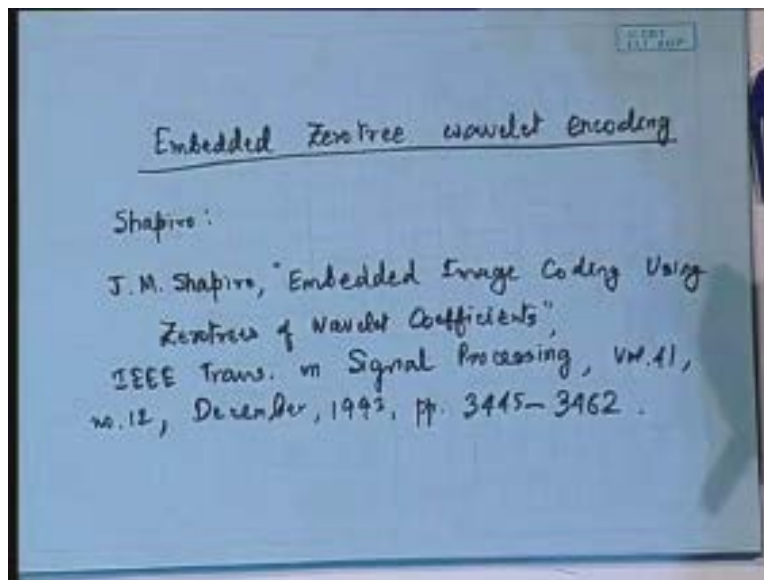 Embedded Zerotree wavelet encoding
Shapiro:
J. M. Shapiro, "Embedded Image Coding Using
Zerotrees of Wavelet Coefficients",
IEEE Trans. on Signal Processing, Vol. 41,
no. 12, December, 1993, pp. 3445-3462.